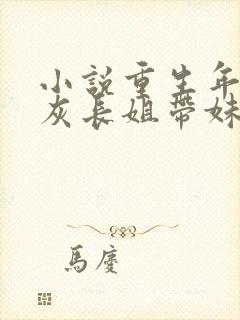 小說重生年
灰長姐帶妹
馬慶